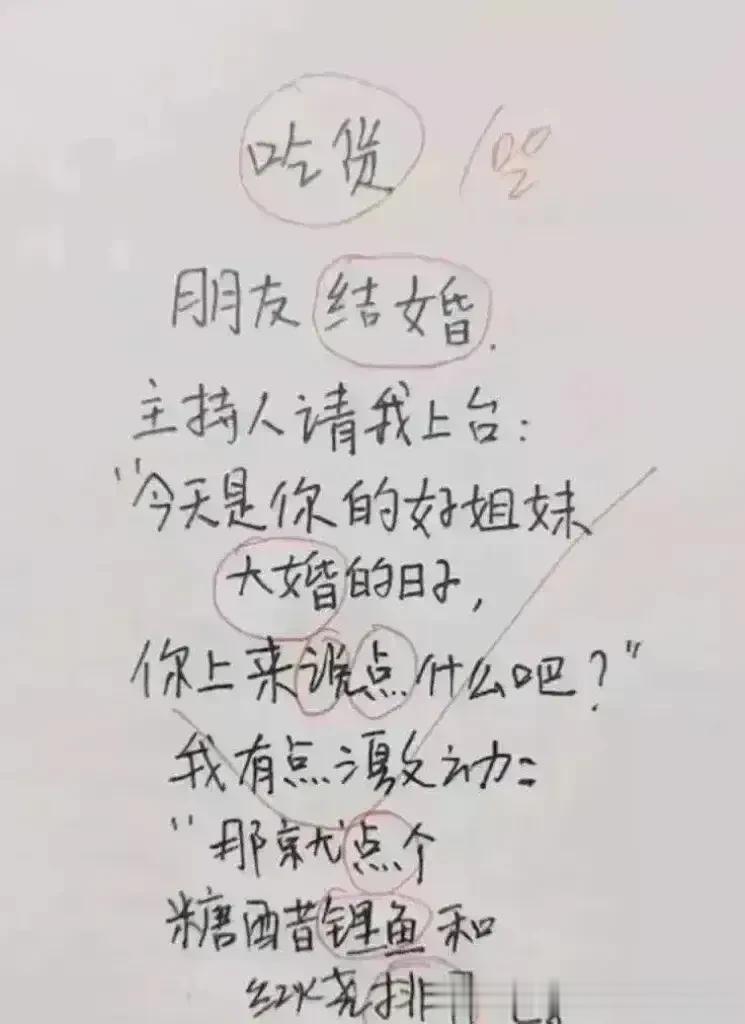 吃货
朋友结婚.
主持人请我上台:
"今天是你的好姐妹
大婚的日子,
你上来说点什么吧?"
我有点激动:
"那就点个
糖醋鲤鱼和
红烧排